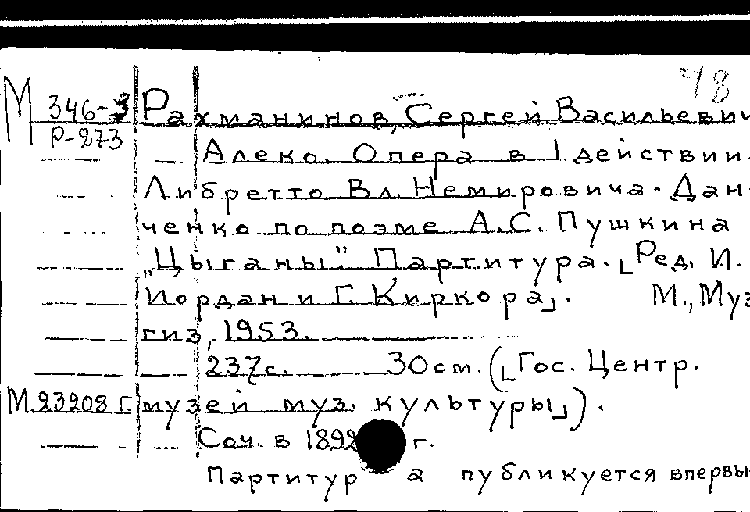 78
М 346-3 Рахманинов, Сергей Васильевич
Р-273
Алеко. Опера в 1 действии.
Либретто Вл. Немировича-Дан-
ченко по поэме А.С. Пушкина
"Цыганы" Партитура. [Ред. И.
Иордан и Г. Киркора]. М., Муз-
гиз, 1953.
237с. 30см. ([Гос. Центр.
М.23208 Г. музей муз. культуры]).
Соч. в 1892 г.
Партитур а публикуется впервы